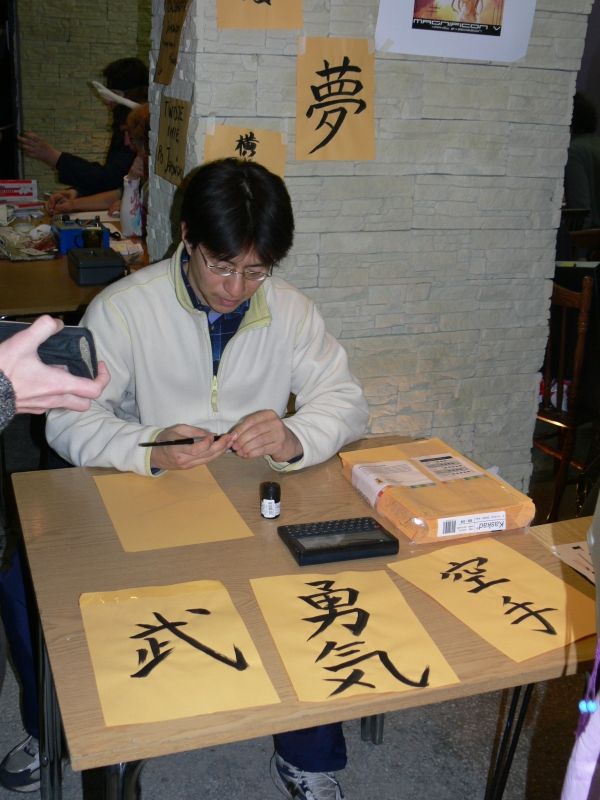 MAGNIFICON V
夢
横
TWOJE
IMIĘ
PO JAPOŃSKU
Kaskad
武
勇
気
空
手